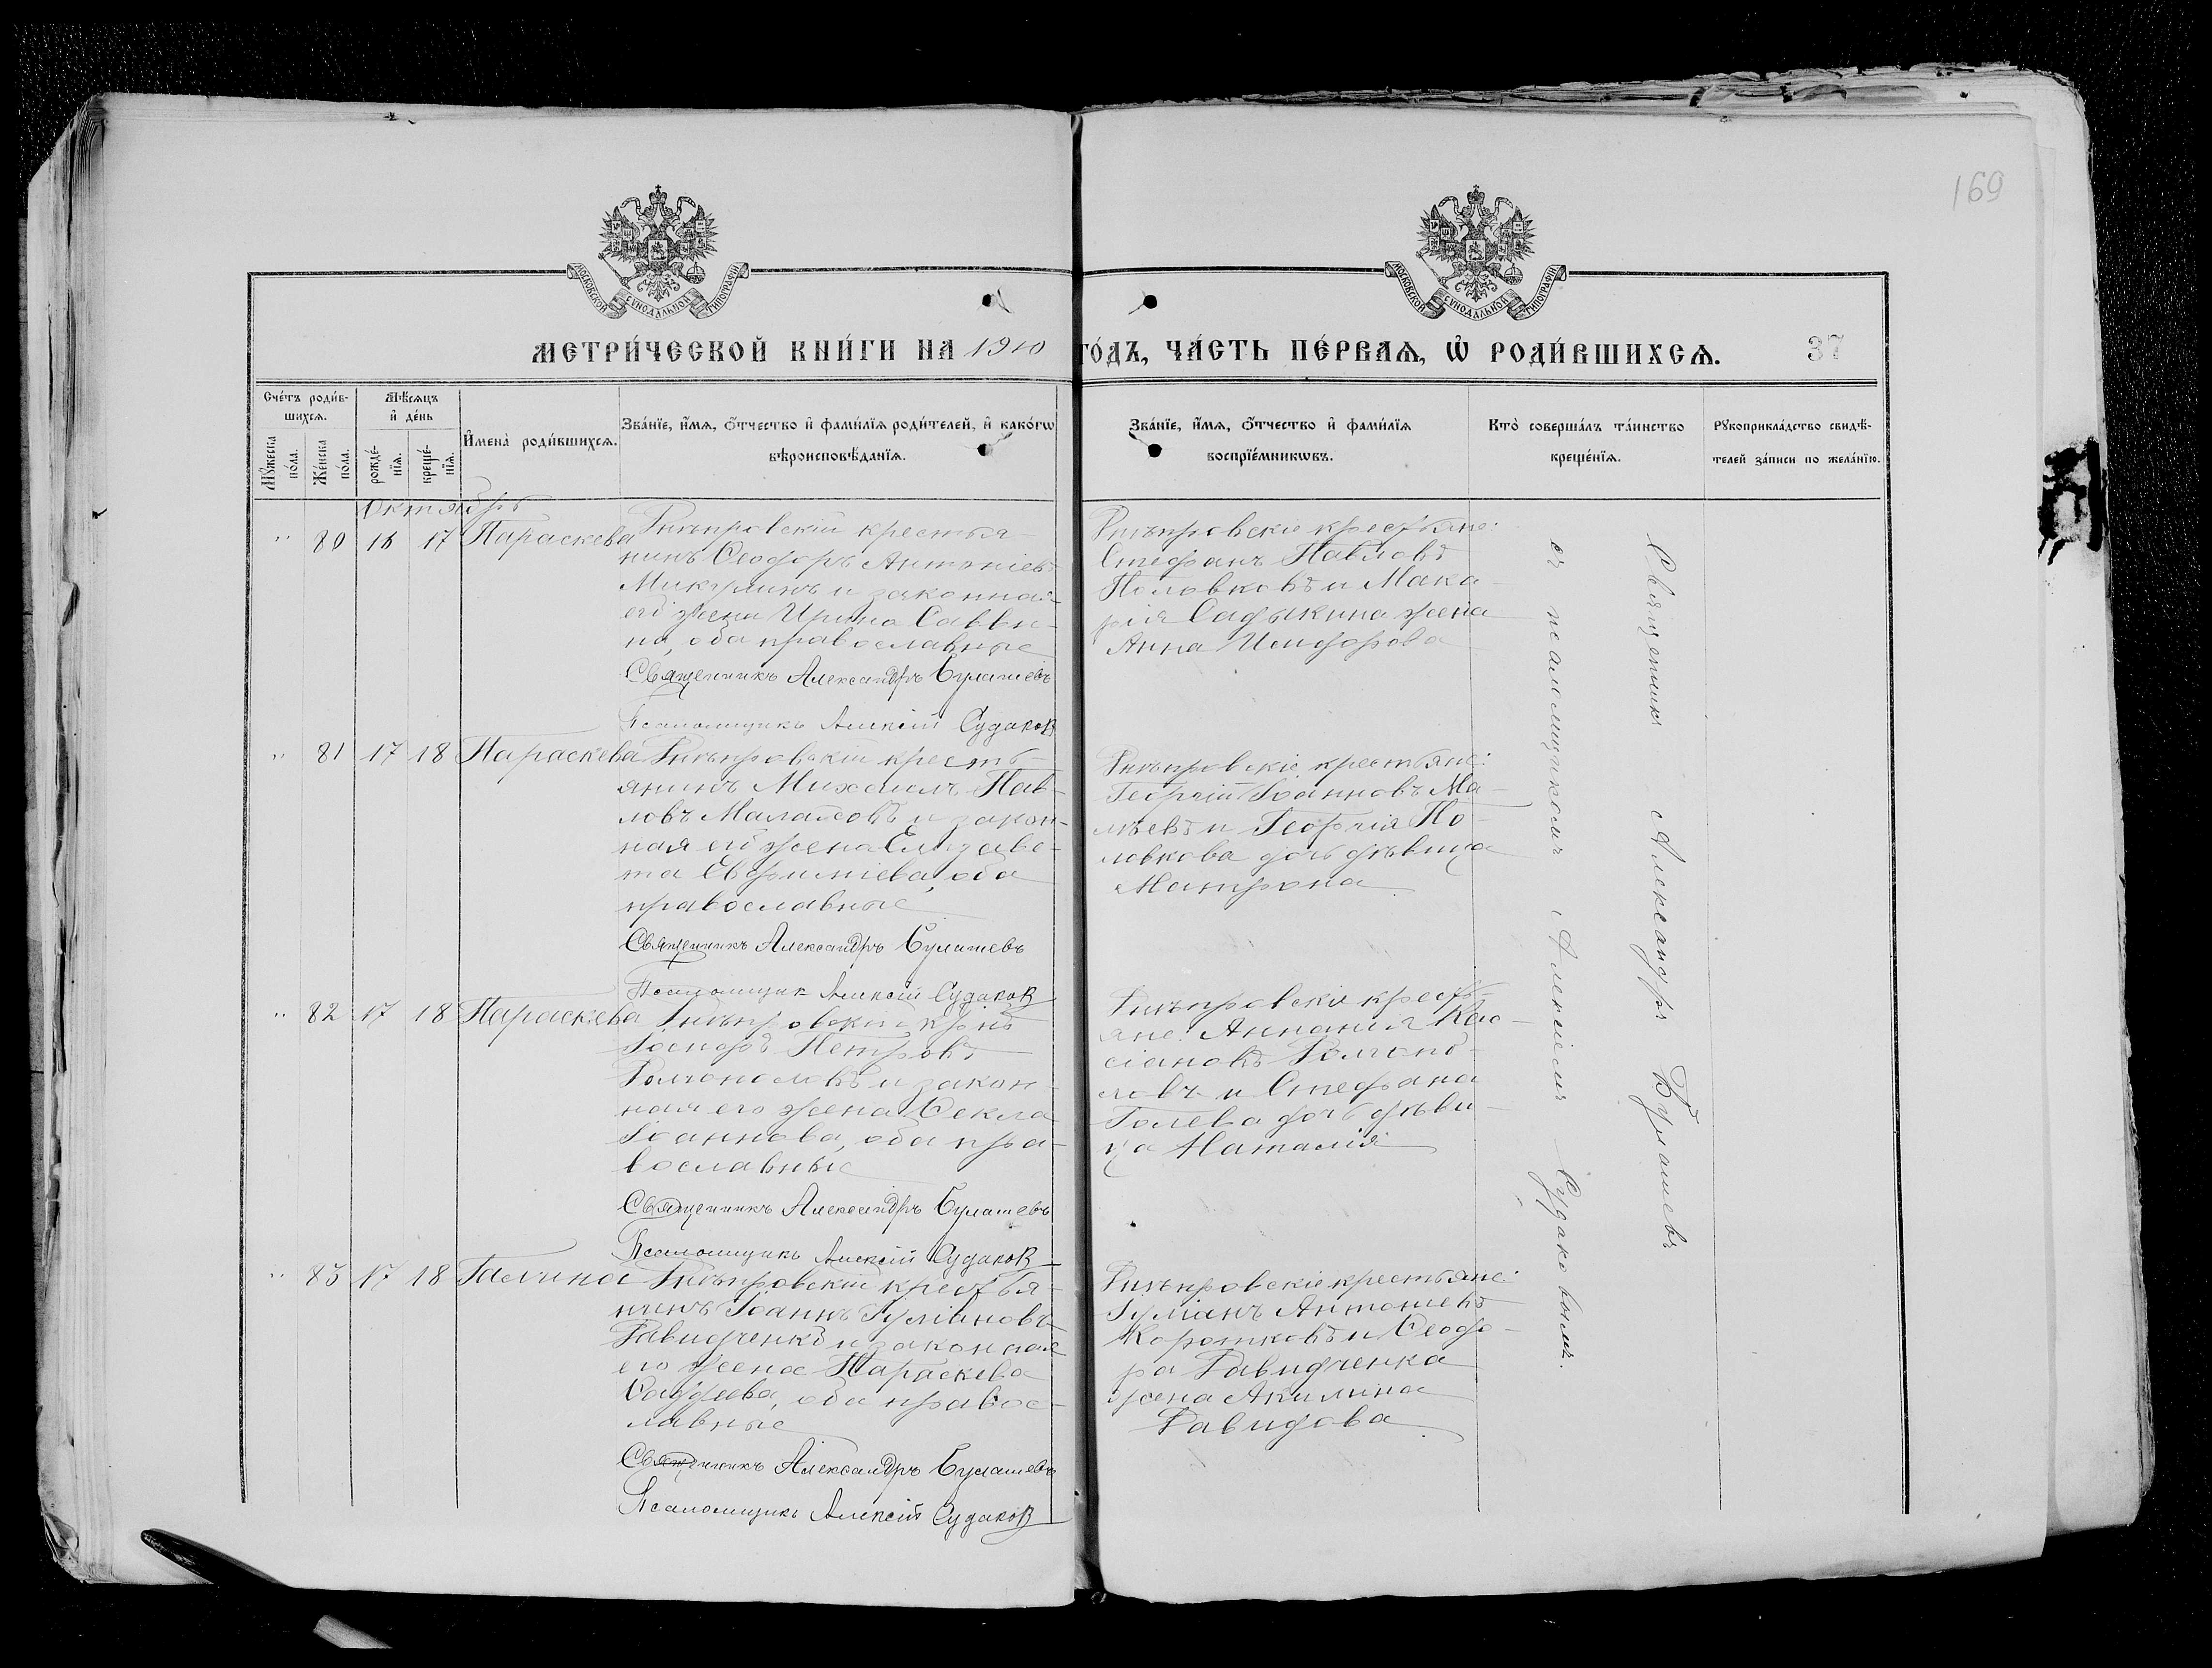 169
МОСКОВСКОЙ СѴНОДАЛЬНОЙ ТИПОГРАФІИ
МОСКОВСКОЙ СѴНОДАЛЬНОЙ ТИПОГРАФІИ
МЕТРИ́ЧЕСКОЙ КНИ́ГИ НА 1910 ГО́ДЪ, ЧА́СТЬ ПЕ́РВАѦ, Ѽ РОДИ́ВШИХСѦ. 37
Сче́тъ роди́в-
шихсѧ.
Мꙋ́жеска по́ла.
Же́нска по́ла.
Мѣ́сѧцъ
и҆ де́нь
рожде́-
нїѧ.
креще́-
нїѧ.
И҆мена̀ роди́вшихсѧ.
Зва́нїе, и҆́мѧ, ѻ҆́тчество и҆ фами́лїѧ роди́телей, и҆ како́гѡ
вѣроисповѣ́данїѧ.
Зва́нїе, и҆́мѧ, ѻ҆́тчество и҆ фами́лїѧ
воспрїе́мникѡвъ.
Кто̀ соверша́лъ та́инство
креще́нїѧ.
Рꙋкоприкла́дство свидѣ́-
телей за́писи по жела́нїю.
Октябрь
" 80 16 17 Параскева
Днѣпровскій крестья-
нинъ Ѳеодоръ Антоніевъ
Микулинъ и законная
его жена Ирина Савви-
на, оба православные
Священникъ Александръ Булашевъ
Псаломщикъ Алексій Судаковъ
Днѣпровскіе крестьяне:
Стефанъ Павловъ
Половковъ и Мака-
рія Садыкина жена
Анна Исидорова
" 81 17 18 Параскева
Днѣпровскій кресть-
янинъ Михаилъ Пав-
ловъ Малаховъ и закон-
ная его жена Елизаве-
та Евфиміева, оба
православные
Священникъ Александръ Булашевъ
Псаломщикъ Алексій Судаковъ
Днѣпровскіе крестьяне:
Георгій Іоанновъ Ма-
лѣевъ и Георгія По-
ловкова дочь дѣвица
Матрона
" 82 17 18 Параскева
Днѣпровскій кр-нъ
Іосифъ Петровъ
Долгополовъ и закон-
ная его жена Ѳекла
Іоаннова, оба пра-
вославные
Священникъ Александръ Булашевъ
Псаломщикъ Алексій Судаковъ
Днѣпровскіе кресть-
яне: Анания Кас-
сіановъ Долгопо-
ловъ и Стефана
Голева дочь дѣви-
ца Наталія
" 83 17 18 Галина
Днѣпровскій крестья-
нинъ Іоаннъ Іуліановъ
Давидченковъ и законная
его жена Параскева
Саввева, оба правос-
лавные
Священникъ Александръ Булашевъ
Псаломщикъ Алексій Судаковъ
Днѣпровскіе крестьяне:
Іуліанъ Антоніевъ
Коротковъ и Ѳеодо-
ра Давидченка
жена Акилина
Давидова
Священникъ Александръ Булашевъ
съ псаломщикомъ Алексіемъ Судаковымъ.